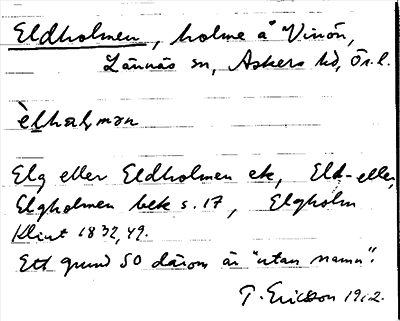 Eldholmen, holme å Vinön,
Lännäs sn, Askers hd, Ör.l.
èlhalmən
Elg eller Eldholmen ek, Eld- eller
Elgholmen bek s. 17, Elgholm
Klint 1832, 49.
Ett grund SO därom är "utan namn".
T. Ericsson 1912.